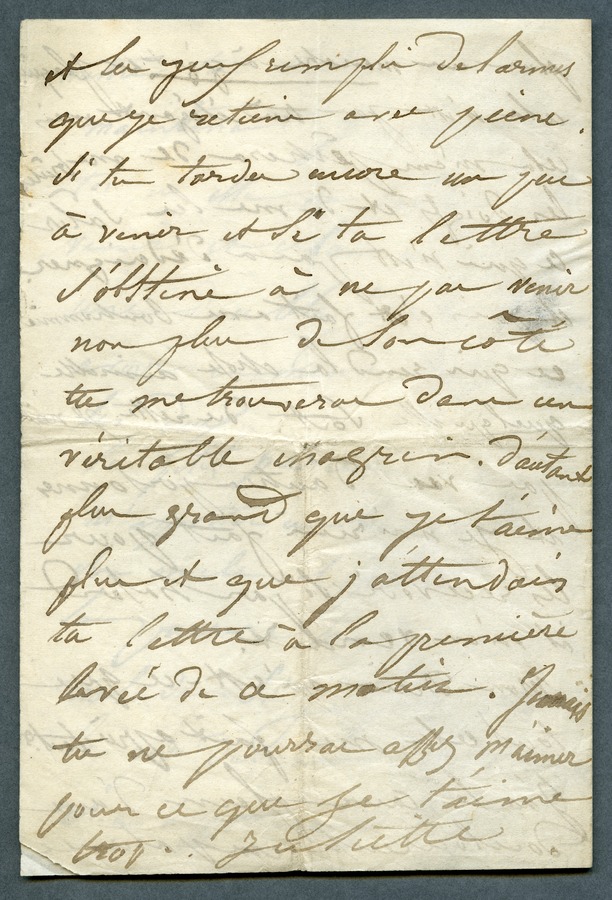 et les yeux remplis de larmes
que je retiens avec peine.
Si tu tardes encore un peu
à venir et si ta lettre
s'obstine à ne pas venir
non plus de son côté
tu me trouveras dans un
véritable chagrin. d'autant
plus grand que je t'aime
plus et que j'attendais
ta lettre à la première
levée de ce matin. Jamais
tu ne pourras assez m'aimer
pour ce que je t'aime
trop. Juliette